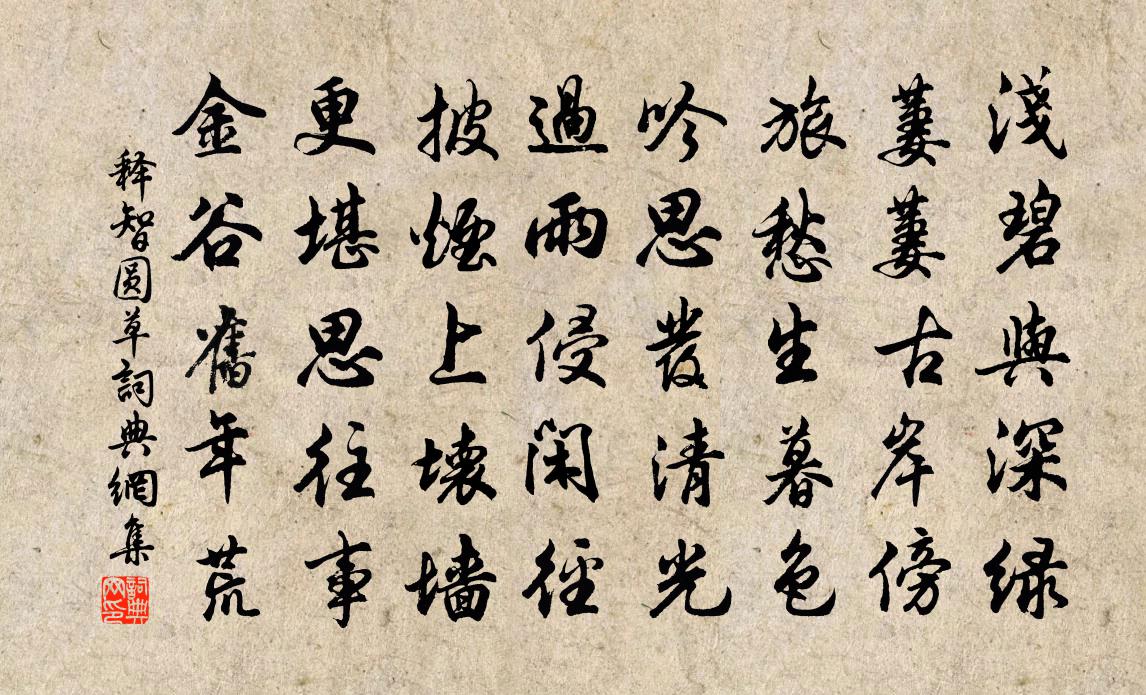 淺碧與深绿
萋萋古岸傍
旅愁生暮色
吟思發清光
過雨侵閑徑
披煙上壞墙
更堪思往事
金谷舊年荒
释智圆草詞典網集
詞典网印